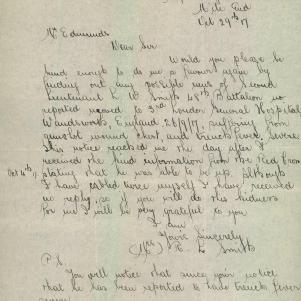 Mile End
Oct 29th 17
Mr Edmunds
Dear Sir
Would you please be
kind enough to do me a favour again by
finding out any possible news of Second
Lieutenant L W Smith 48th Battalion who
reported moved to 3rd London General Hospital
Wandsworth, England 26/9/17 suffering from
gunshot wound chest, and trench fever, severe
This notice reached me the day after I
received the kind information from the Red Cross
Oct 4th stating that he was able to be up, although
I have cabled twice myself I have received
no reply, so if you will do this kindness
for me I will be very grateful to you
I am
Yours Sincerely
(Mrs) E. L. Smith
P.S.
You will notice that since your notice
that he has been reported to have trench fever